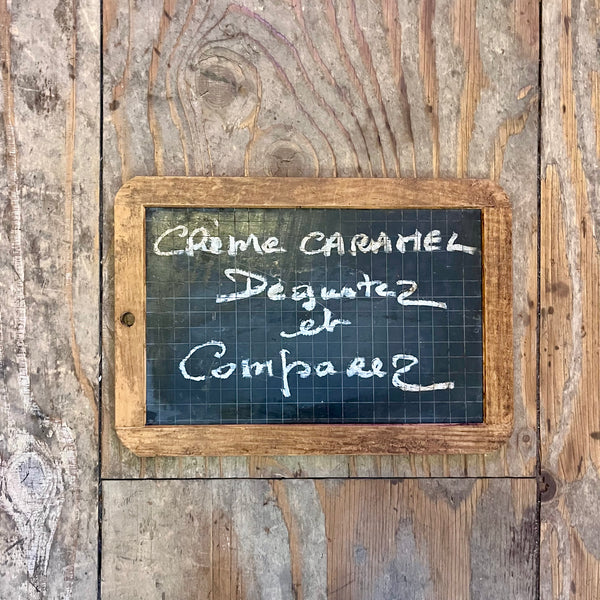 CRème CARAMEL
Dégustez
et
Comparez